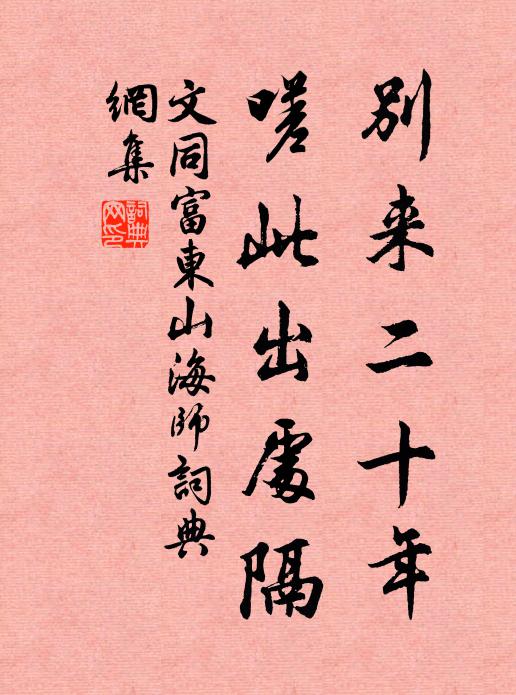 別来二十年
嗟此出處隔
文同富東山海師詞典
網集
詞典
网印